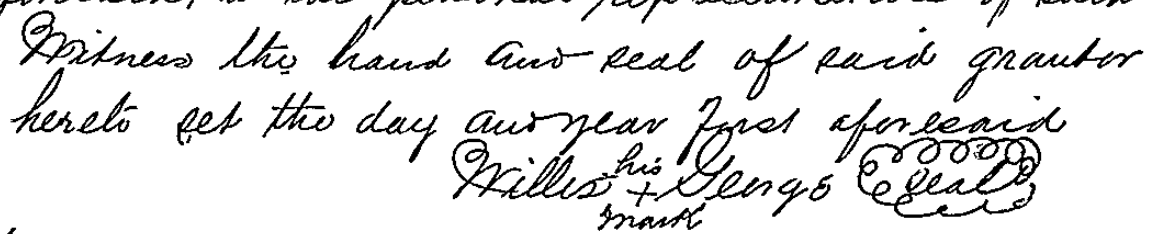 Witness the hand and seal of said grantor
hereto set the day and year first aforesaid
his
Willis + George Seal
mark